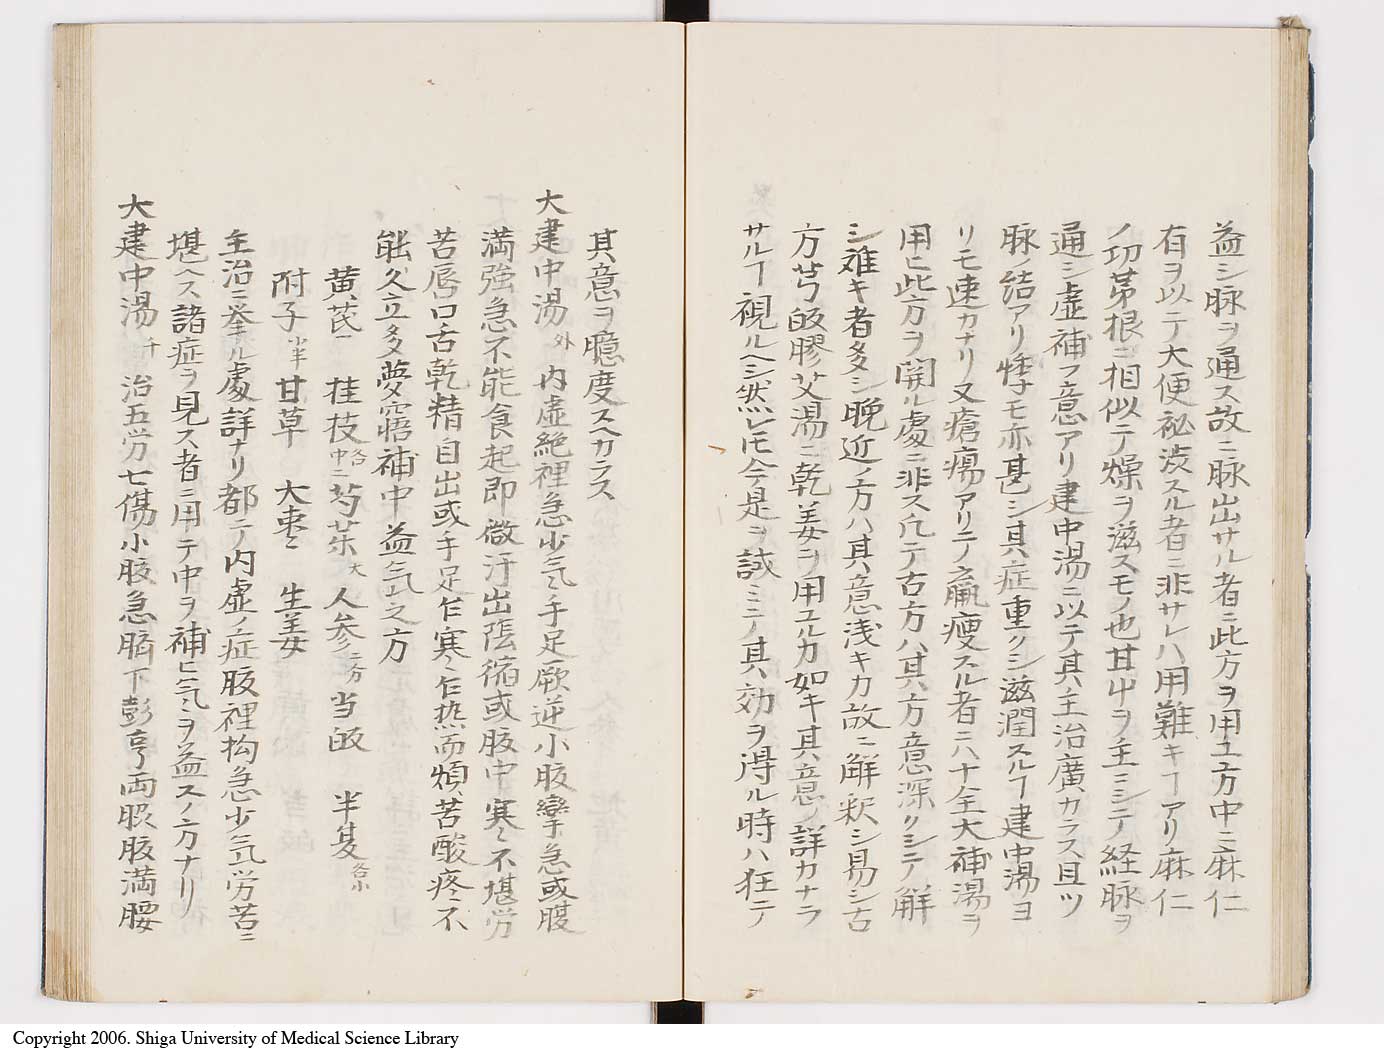 益シ脉ヲ通ス故ニ脉出サル者ニ此方ヲ用ユ方中ニ麻仁
有ヲ以テ大便祕渋スル者ニ非サレハ用難キヿアリ麻仁
ノ功茅根ニ相似テ燥ヲ滋スモノ也其中ヲ主ミシテ経脉ヲ
通シ虚補フ意アリ建中湯ニ以テ其主治廣カラス且ツ
脉ノ結アリ悸モ亦甚シ其症重クシ滋潤スルヿ建中湯ヨ
リモ速カナリ又瘡瘍アリテ羸痩スル者ニハ十全大補湯ヲ
用ヒ此方ヲ開ル處ニ非ス凢テ古方ハ其方意深クシテ解
シ難キ者多シ晩近ノ方ハ其意浅キカ故ニ解釈シ易シ古
方芎皈膠艾湯ニ乾姜ヲ用ユルカ如キ其意ノ詳カナラ
サルヿ視ルヘシ然レ𪜈今是ヲ誠ミテ其効ヲ得ル時ハ狂テ
其意ヲ臆度スヘカラス
大建中湯 外 内虚絶裡急少气手足厥逆小腹攣急或腹
満強急不能食起即微汗出陰縮或腹中寒々不堪労
苦唇口舌乾精自出或手足乍寒々乍热而煩苦酸疼不
能久立多夢寤補中益气之方
黄芪 桂枝 各中ニ 芍茱 大 人参 二分 当皈 半夏 各小
附子 小半 甘草 大棗 生姜
主治ニ挙ル處詳ナリ都テ内虚ノ症腹裡拘急少气労苦ニ
堪ヘス諸症ヲ見ス者ニ用テ中ヲ補ヒ气ヲ益スノ方ナリ
大建中湯 千 治五労七傷小腹急臍下彭亨両脇腹満腰